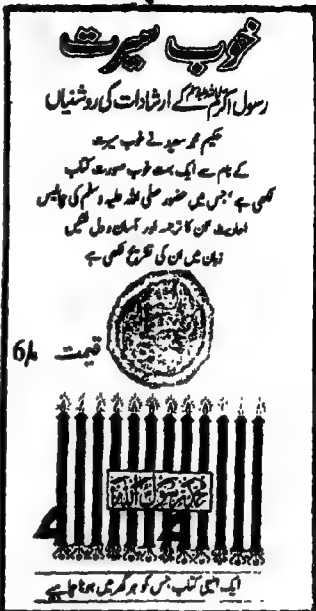 خوب سیرت
رسول اکرم صلی اللہ علیہ وسلم کے ارشادات کی روشنیاں
حکیم محمد سعید نے خوب سیرت
کے نام سے ایک بہت خوب صورت کتاب
لکھی ہے، جس میں حضور صلی اللہ علیہ وسلم کی چالیس
احادیث، ان کا ترجمہ اور آسان و دل نشیں
زبان میں ان کی تشریح لکھی ہے
قیمت 6/
ایک ایسی کتاب جس کو ہر گھر میں ہونا چاہیے